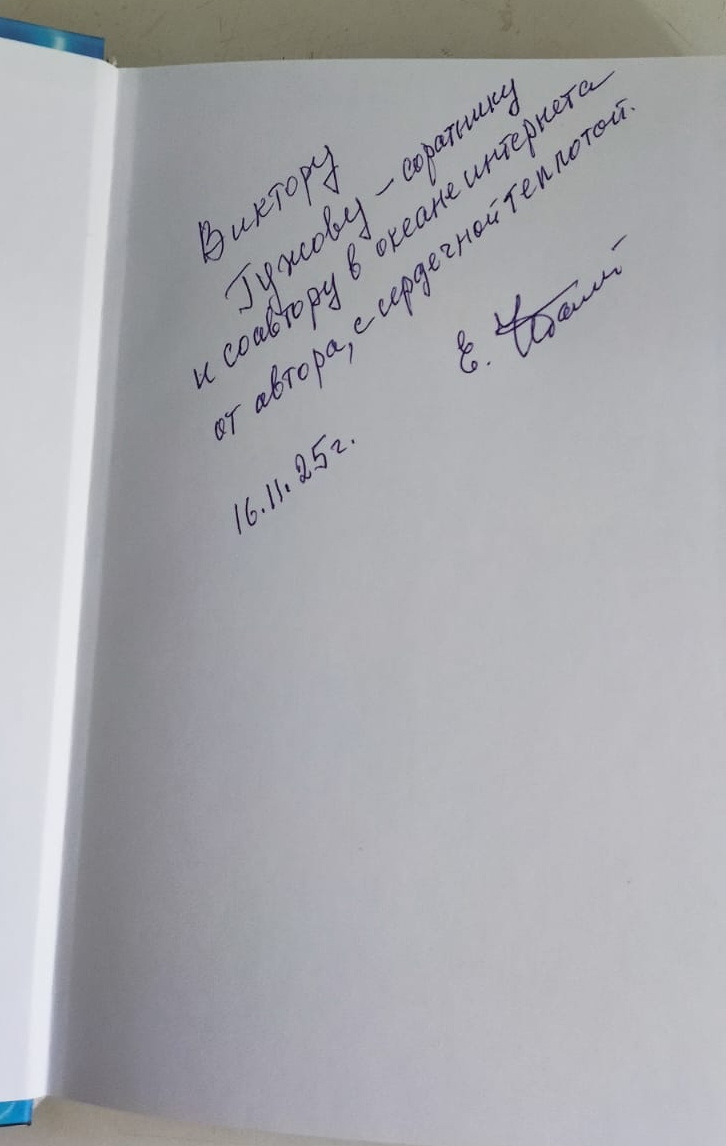 Виктору
Гужову – соратнику
и соавтору в океане интернета
от автора, с сердечной теплотой.
Е.
16.11.25г.